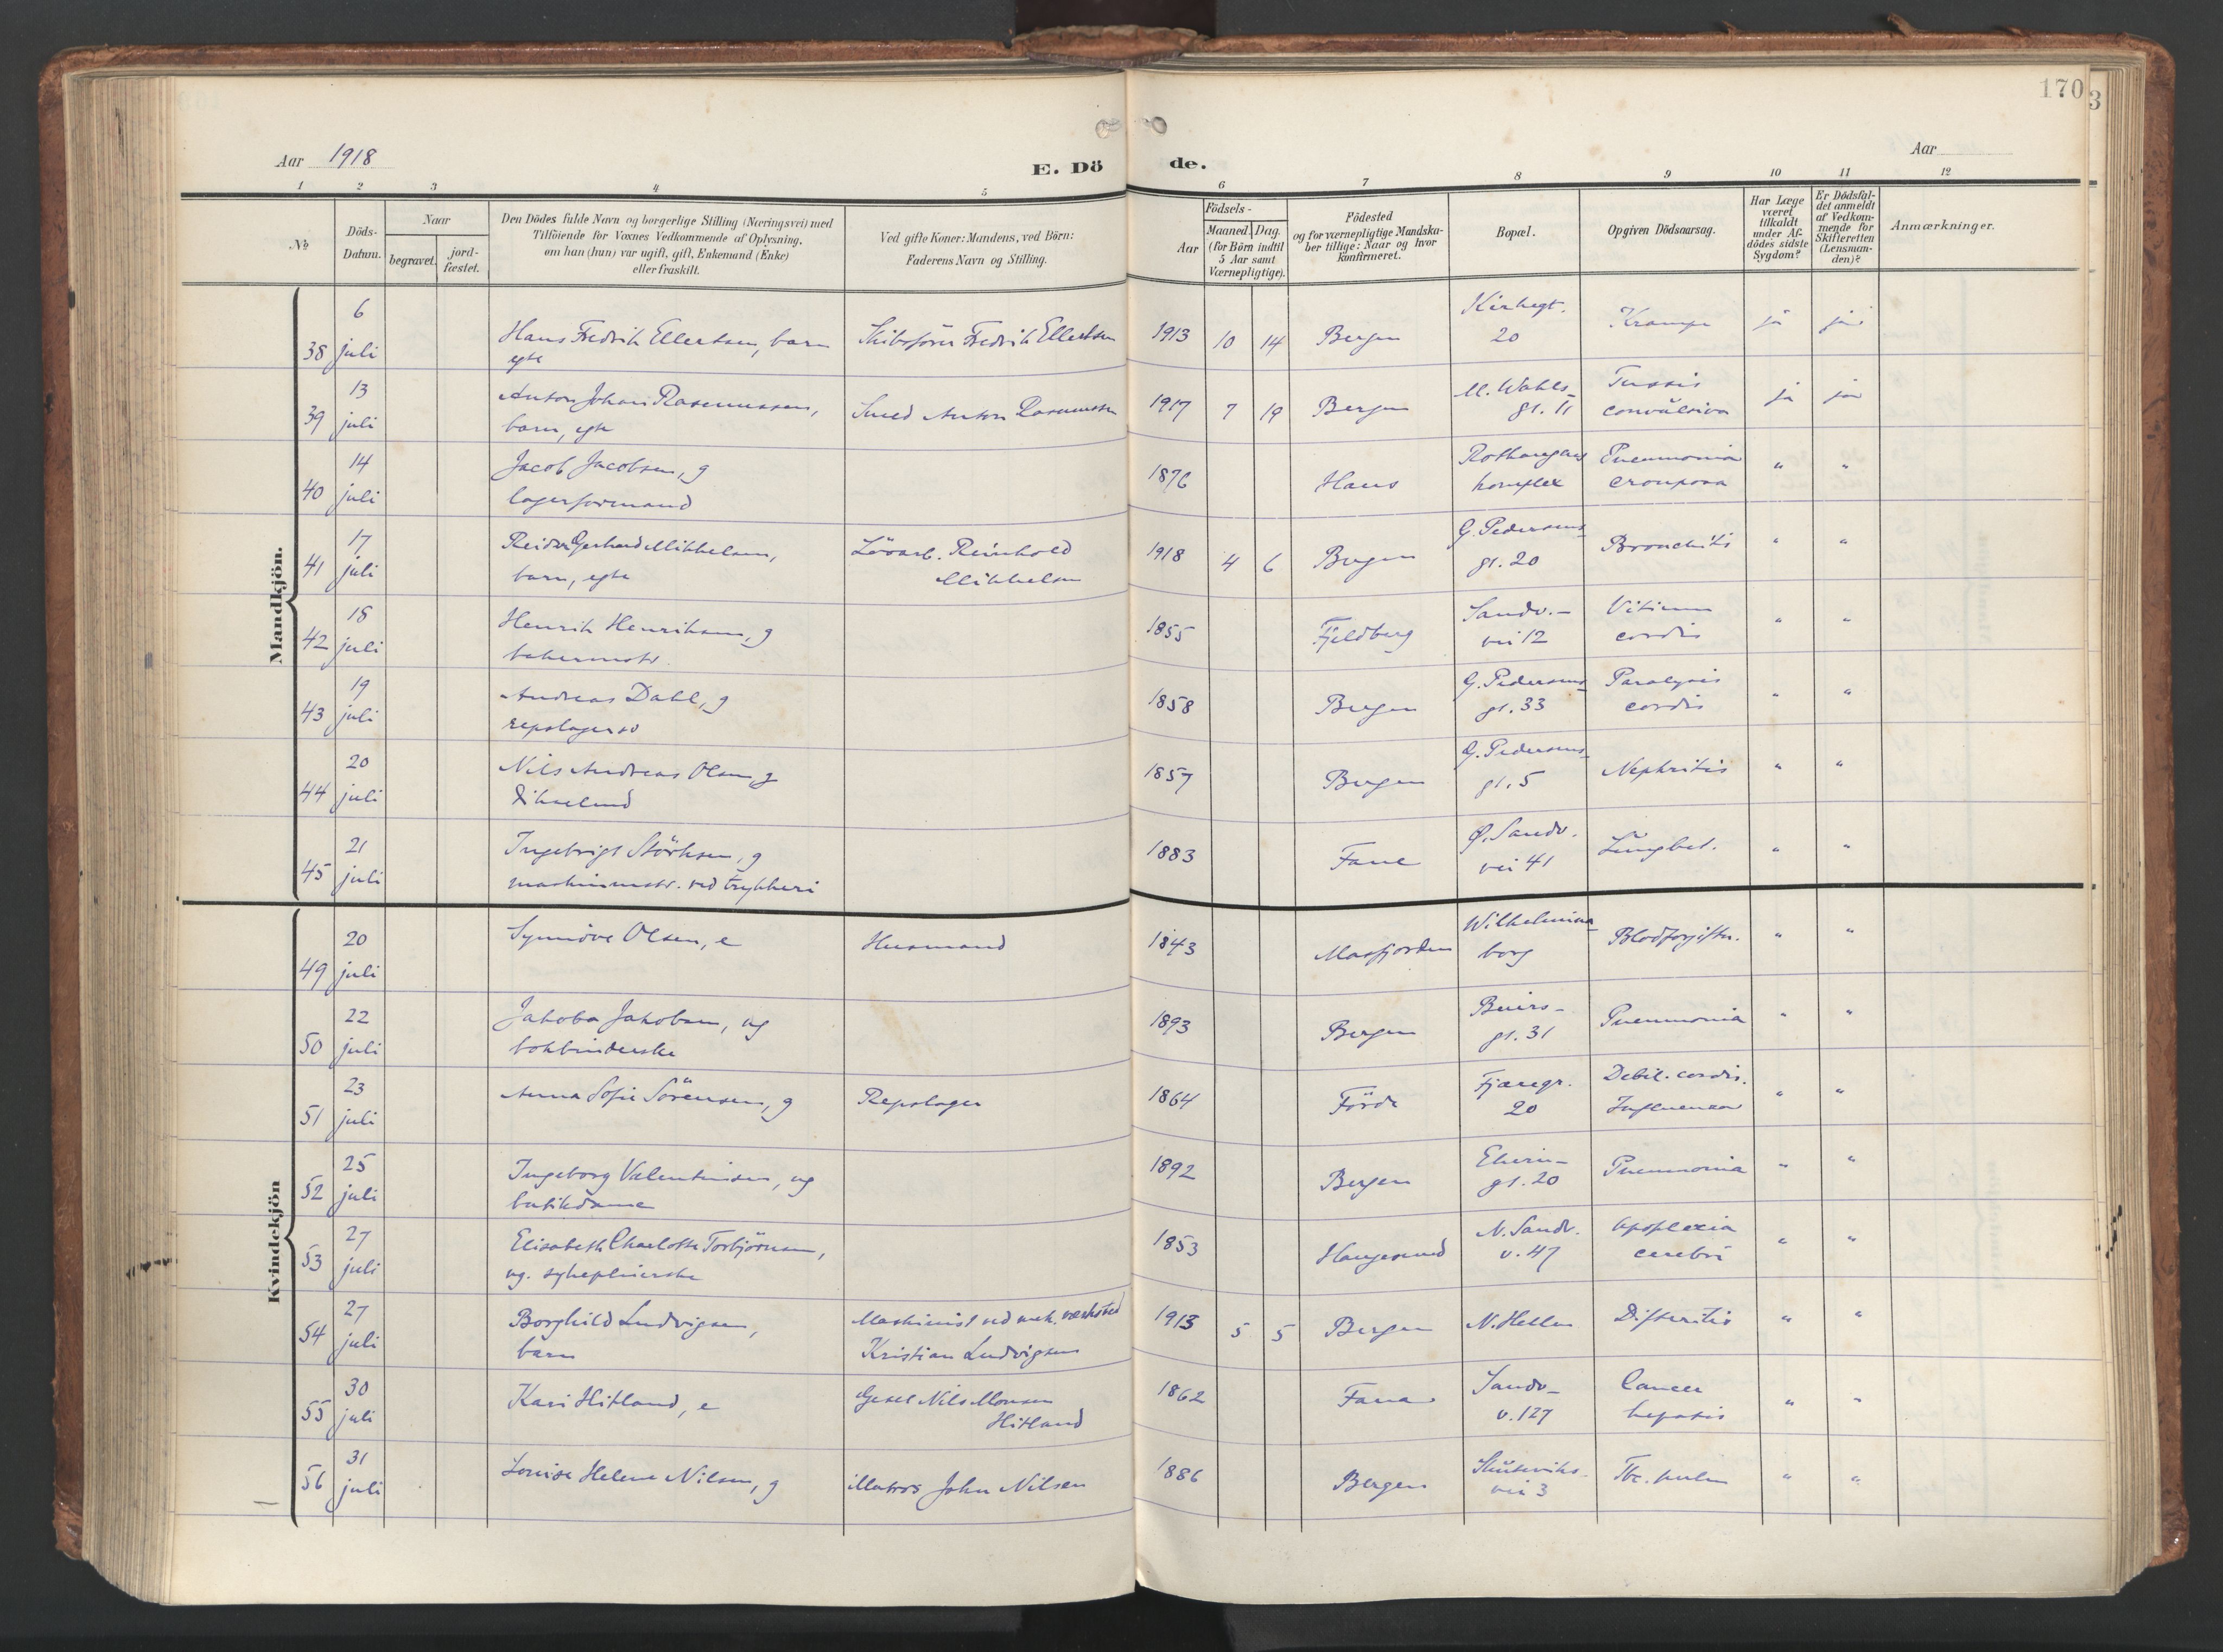 170
3
Aar 1918
E. Dö de.
Aar
1 2 3 4 5 6 7 8 9 10 11 12
No
Döds-
Datum.
Naar
begravet.
jord-
fæstet.
Den Dödes fulde Navn og borgerlige Stilling (Næringsvei) med
Tilföiende for Voxnes Vedkommende af Oplysning,
om han (hun) var ugift, gift, Enkemand (Enke)
eller fraskilt.
Ved gifte Koner: Mandens, ved Börn:
Faderens Navn og Stilling.
Födsels-
Aar
Maaned. Dag.
(for Börn indtil
5 Aar samt
Værnepligtige).
Födested
og for værnepligtige Mandska-
ber tillige: Naar og hvor
konfirmeret.
Bopæl.
Opgiven Dödsaarsag.
Har Læge
været
tilkaldt
under Af-
dödes sidste
Sygdom?
Er Dödsfal-
det anmeldt
af Vedkom-
mende for
Skifteretten
(Lensman-
den)?
Anmærkninger.
Mandkjön.
38 6 juli Hans Fredrik Ellertsen, barn Skibsfører Fredrik Ellertsen 1913 10 14 Bergen Kirkegt. Krampe ja ja
egte 20
39 13 juli Anton Johan Rasmussen, Smed Anton Rasmussen 1917 7 19 Bergen M. Wahls- Tussis ja ja
barn, egte gt. 11 convulsiva
40 14 juli Jacob Jacobsen, g 1876 Haus Rothaugens Pneumonia " "
lagerformand komplex crouposa
41 17 juli Reidar Gerhard Mikkelsen, Løsarb. Reinhold 1918 4 6 Bergen G. Pedersens Bronchitis " "
barn, egte Mikkelsen gt. 20
42 18 juli Henrik Henriksen, g 1855 Fjeldberg Sandv.- Vitium " "
bakermstr. vei 12 cordis
43 19 juli Andreas Dahl, g 1858 Bergen G. Pedersens- Paralysis " "
repslagersv gt. 33 cordis
44 20 juli Nils Andreas Olsen, g 1857 Bergen G. Pedersens- Nephritis " "
gt. 5
45 21 juli Ingebrigt Störksen, g 1883 Fane Ø. Sandv. Lungbet. " "
maskinmstr. ved trykkeri vei 41
Kvindekjön
49 20 juli Synnöve Olsen, e Husmand 1843 Masfjorden Wilhelmina- Blodforgiftn. " "
borg
50 22 juli Jakoba Jakobsen, ug 1893 Bergen gt. 31 Pneumonia " "
bokbinderske
51 23 juli Anna Sofie Sörensen, g Repslager 1864 Förde Fjæregr. Debil. cordis. " "
20 Influenza
52 25 juli Ingeborg Valentinsen, ug 1892 Bergen gt. 20 Pneumonia " "
butikdame
53 27 juli Elisabeth Charlotte Torbjörnsen, 1853 Haugesund N. Sandv. Apoplexia " "
ug. sykepleierske v. 47 cerebri
54 27 juli Borghild Ludvigsen, Maskinist ved mek. verksted 1913 5 5 Bergen N. Hellen Difteritis " "
barn Kristian Ludvigsen
55 30 juli Kari Hitland, e Gesel Nils Monsen 1862 Fana Sandv- Cancer " "
Hitland v. 127 hepatis
56 31 juli Louise Helene Nilsen, g Matros John Nilsen 1886 Bergen Skuteviks- Tbc. pulm " "
vei 3